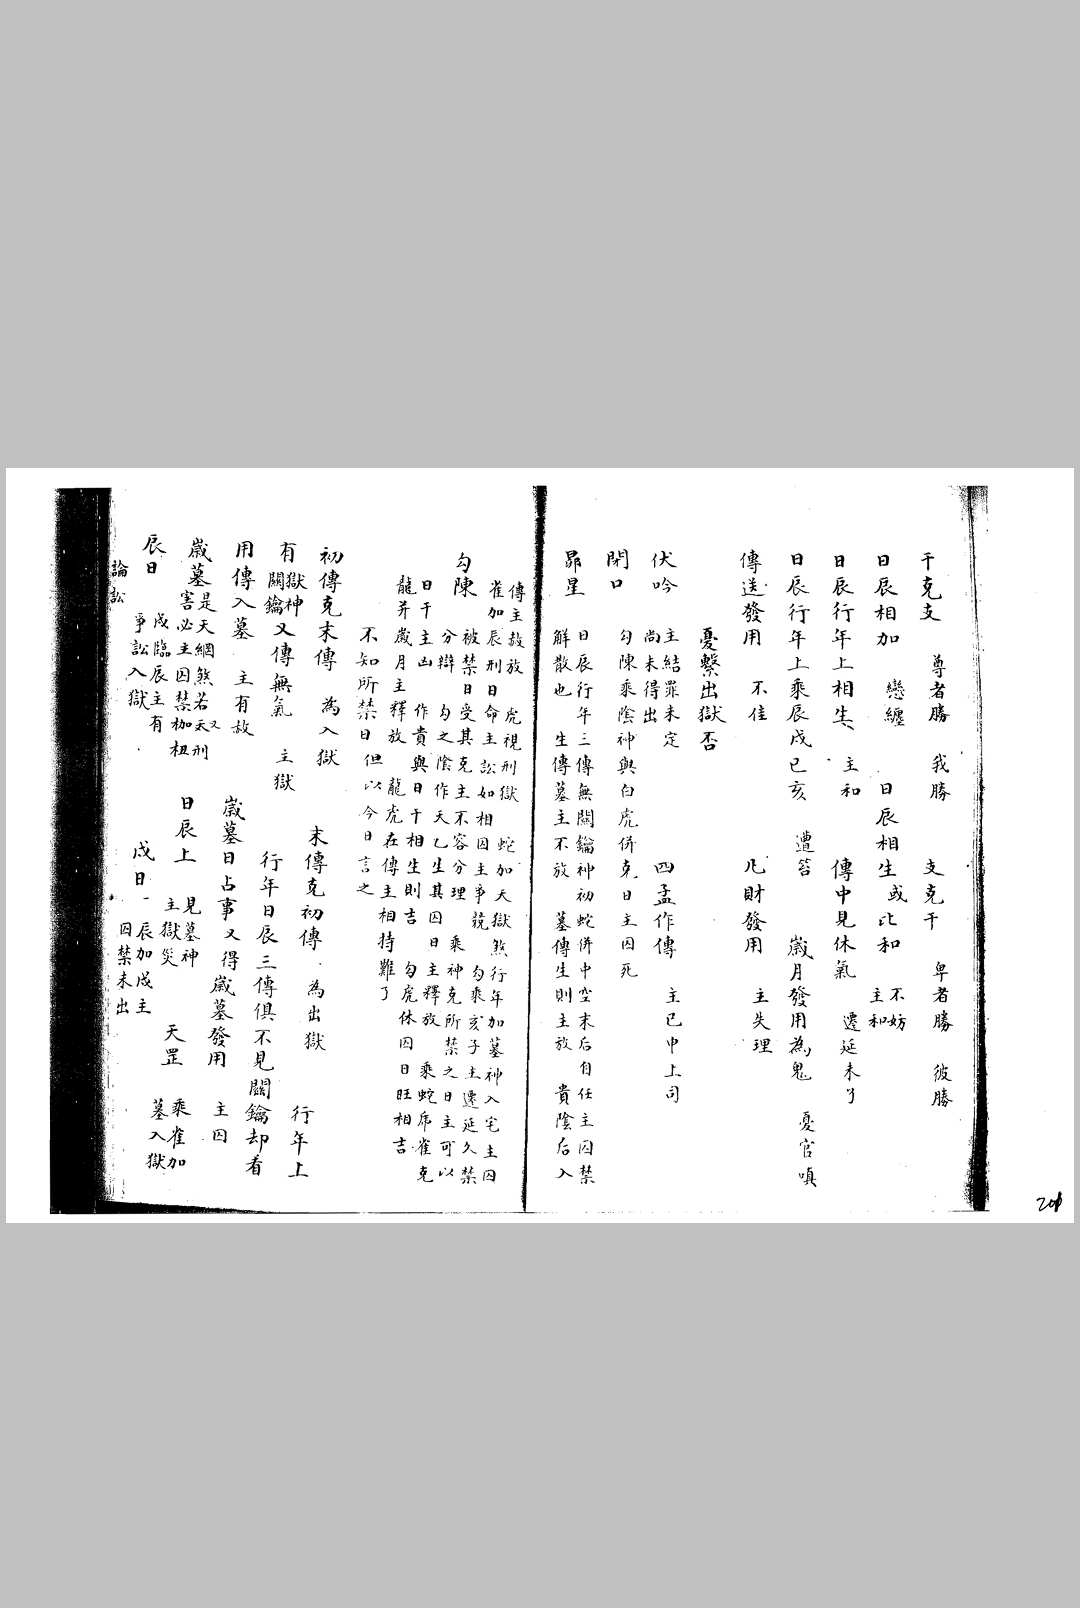 干克支　尊者勝　我勝　支克干　卑者勝　彼勝
日辰相加　戀纏　日辰相生或比和　不妨主和
日辰行年上相生　主和　傳中見休氣　遷延未了
日辰行年上乘辰戌巳亥　遭笞　歲月發用為鬼　憂官嗔
傳送發用　不佳　凡財發用　主失理
憂繫出獄否
伏吟　主結罪未定尚未得出　四孟作傳　主已申上司
閉口　勾陳乘陰神與白虎併克日主囚死
昴星　日辰行年三傳無關鑰神初蛇併中空末后自任主囚禁
解散也　生傳墓主不放　墓傳生則主放　貴陰后入
傳主赦放　虎視刑獄　蛇加天獄煞行年加墓神入宅主囚
雀加辰刑日命主訟如相囚主爭競　勾乘亥子主遷延久禁
勾陳　被禁日受其克主不容分理　乘神克所禁之日主可以
分辯　勾之陰作天乙生其囚日主釋放　乘蛇虎雀克
日干主凶　作貴與日干相生則吉　勾虎休囚日旺相吉
龍并歲月主釋放　龍虎在傳主相持難了
不知所禁日但以今日言之
初傳克末傳　為入獄　末傳克初傳　為出獄　行年上
有獄神關鑰又傳無氣　主獄　行年日辰三傳俱不見關鑰却看
用傳入墓　主有赦　歲墓日占事又得歲墓發用　主囚
歲墓是天網煞若又天刑害必主囚禁枷杻　日辰上　見墓神主獄災　天罡　乘雀加墓入獄
辰日　戌臨辰主有爭訟入獄　戌日　辰加戌主囚禁未出
論訟
204